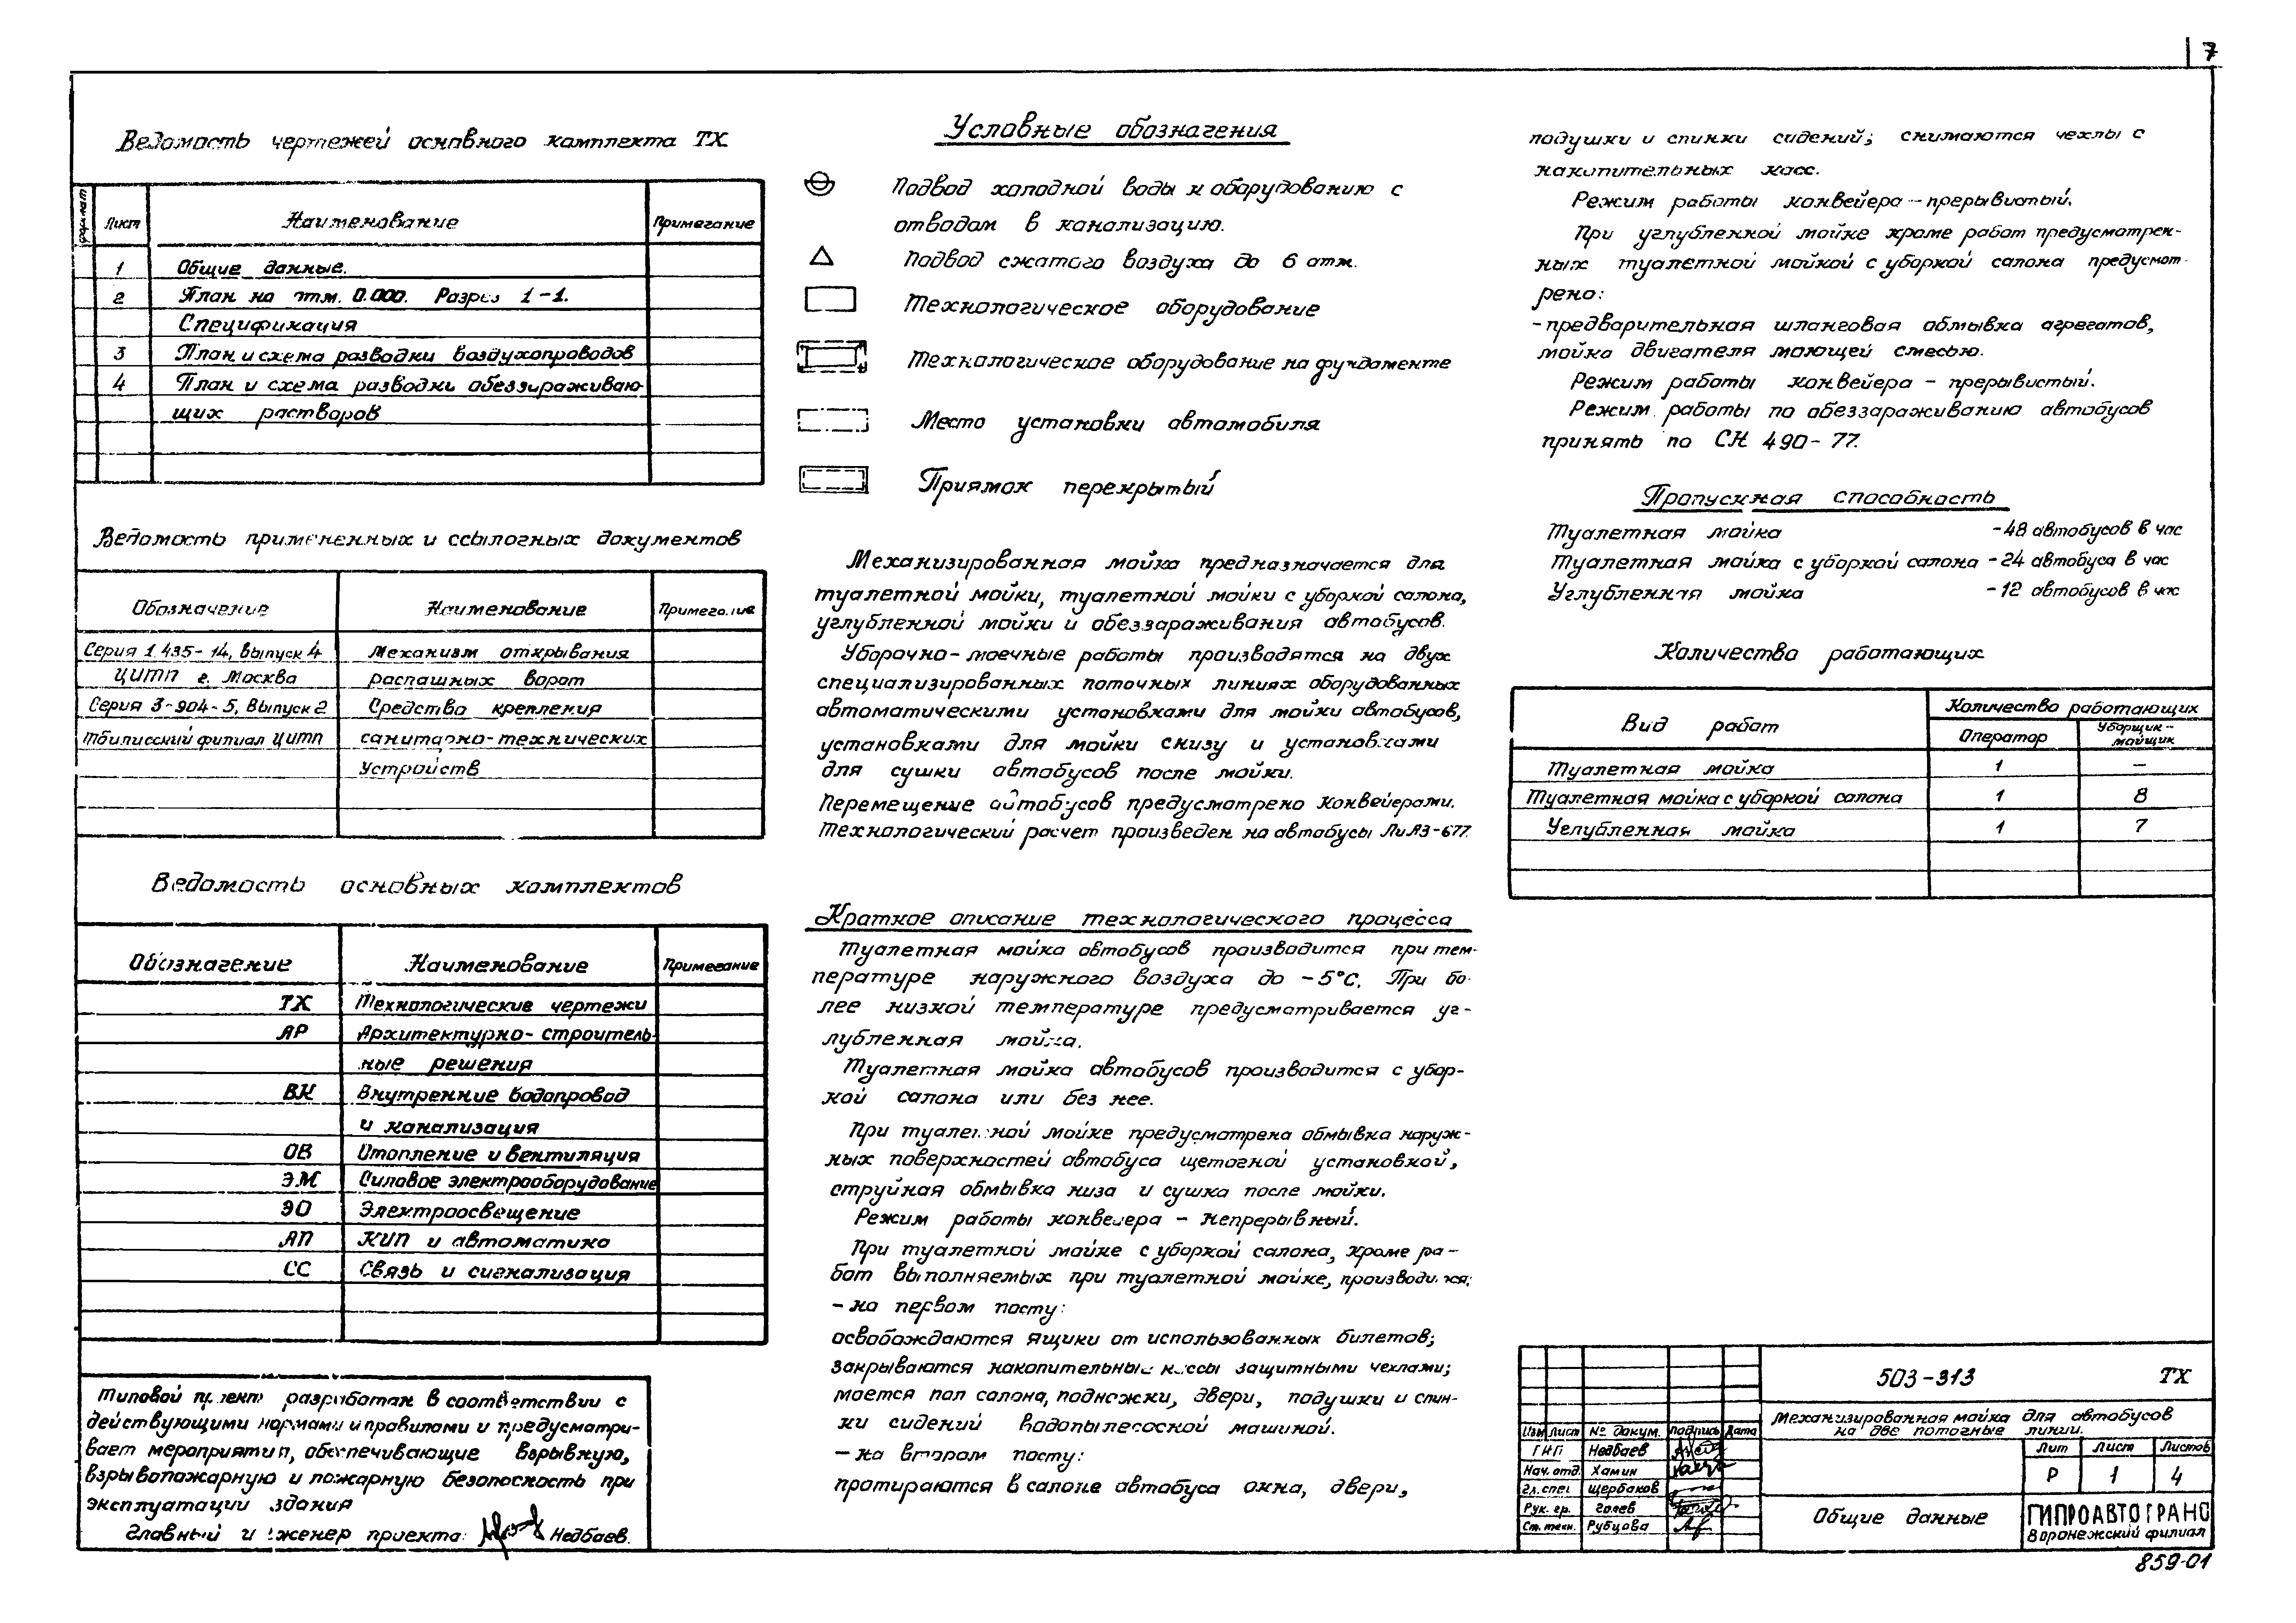 7
Ведомость чертежей основного комплекта ТХ
формат Лист Наименование Примечание
1 Общие данные.
2 План на отм. 0.000. Разрез 1-1.
Спецификация
3 План и схема разводки воздухопроводов
4 План и схема разводки обеззараживаю-
щих растворов
Ведомость примененных и ссылочных документов
Обозначение Наименование Примечание
Серия 1.435-14, Выпуск 4 Механизм открывания
ЦИТП г. Москва распашных ворот
Серия 3-904-5, Выпуск 2 Средства крепления
Тбилисский филиал ЦИТП санитарно-технических
Устройств
Ведомость основных комплектов
Обозначение Наименование Примечание
ТХ Технологические чертежи
АР Архитектурно-строитель-
ные решения
ВК Внутренние водопровод
и канализация
ОВ Отопление и вентиляция
ЭМ Силовое электрооборудование
ЭО Электроосвещение
АП КИП и автоматика
СС Связь и сигнализация
Типовой проект разработан в соответствии с
действующими нормами и правилами и предусматри-
вает мероприятия, обеспечивающие взрывную,
взрывопожарную и пожарную безопасность при
эксплуатации здания
Главный инженер проекта: Недбаев.
Условные обозначения
Подвод холодной воды к оборудованию с
отводом в канализацию.
Подвод сжатого воздуха до 6 атм.
Технологическое оборудование
Технологическое оборудование на фундаменте
Место установки автомобиля
Приямок перекрытый
Механизированная мойка предназначается для
туалетной мойки, туалетной мойки с уборкой салона,
углубленной мойки и обеззараживания автобусов.
Уборочно-моечные работы производятся на двух
специализированных поточных линиях оборудованных
автоматическими установками для мойки автобусов,
установками для мойки снизу и установками
для сушки автобусов после мойки.
Перемещение автобусов предусмотрено конвейерами.
Технологический расчет произведен на автобусы ЛиАЗ-677.
Краткое описание технологического процесса
Туалетная мойка автобусов производится при тем-
пературе наружного воздуха до -5°С. При бо-
лее низкой температуре предусматривается уг-
лубленная мойка.
Туалетная мойка автобусов производится с убор-
кой салона или без нее.
При туалетной мойке предусмотрена обмывка наруж-
ных поверхностей автобуса щеточной установкой,
струйная обмывка низа и сушка после мойки.
Режим работы конвейера - непрерывный.
При туалетной мойке с уборкой салона, кроме ра-
бот выполняемых при туалетной мойке, производится:
- на первом посту:
освобождаются ящики от использованных билетов;
закрываются накопительные кассы защитными чехлами;
моется пол салона, подножки, двери, подушки и спин-
ки сидений водопылесосной машиной.
- на втором посту:
протираются в салоне автобуса окна, двери,
подушки и спинки сидений; снимаются чехлы с
накопительных касс.
Режим работы конвейера - прерывистый.
При углубленной мойке кроме работ предусмотрен-
ных туалетной мойкой с уборкой салона предусмот-
рено:
- предварительная шланговая обмывка агрегатов,
мойка двигателя моющей смесью.
Режим работы конвейера - прерывистый.
Режим работы по обеззараживанию автобусов
принять по СН 490-77.
Пропускная способность
Туалетная мойка - 48 автобусов в час
Туалетная мойка с уборкой салона - 24 автобуса в час
Углубленная мойка - 12 автобусов в час
Количество работающих
Вид работ Количество работающих
Оператор Уборщик-мойщик
Туалетная мойка 1 —
Туалетная мойка с уборкой салона 1 8
Углубленная мойка 1 7
503-313 ТХ
Механизированная мойка для автобусов
на две поточные линии.
Изм Лист № докум. Подпись Дата
ГИП Недбаев
Нач. отд. Хамин
Гл. спец Щербаков
Рук. гр. Голев
Ст. техн. Рубцова
Лит Лист Листов
Р 1 4
Общие данные
ГИПРОАВТОТРАНС
Воронежский филиал
859-01